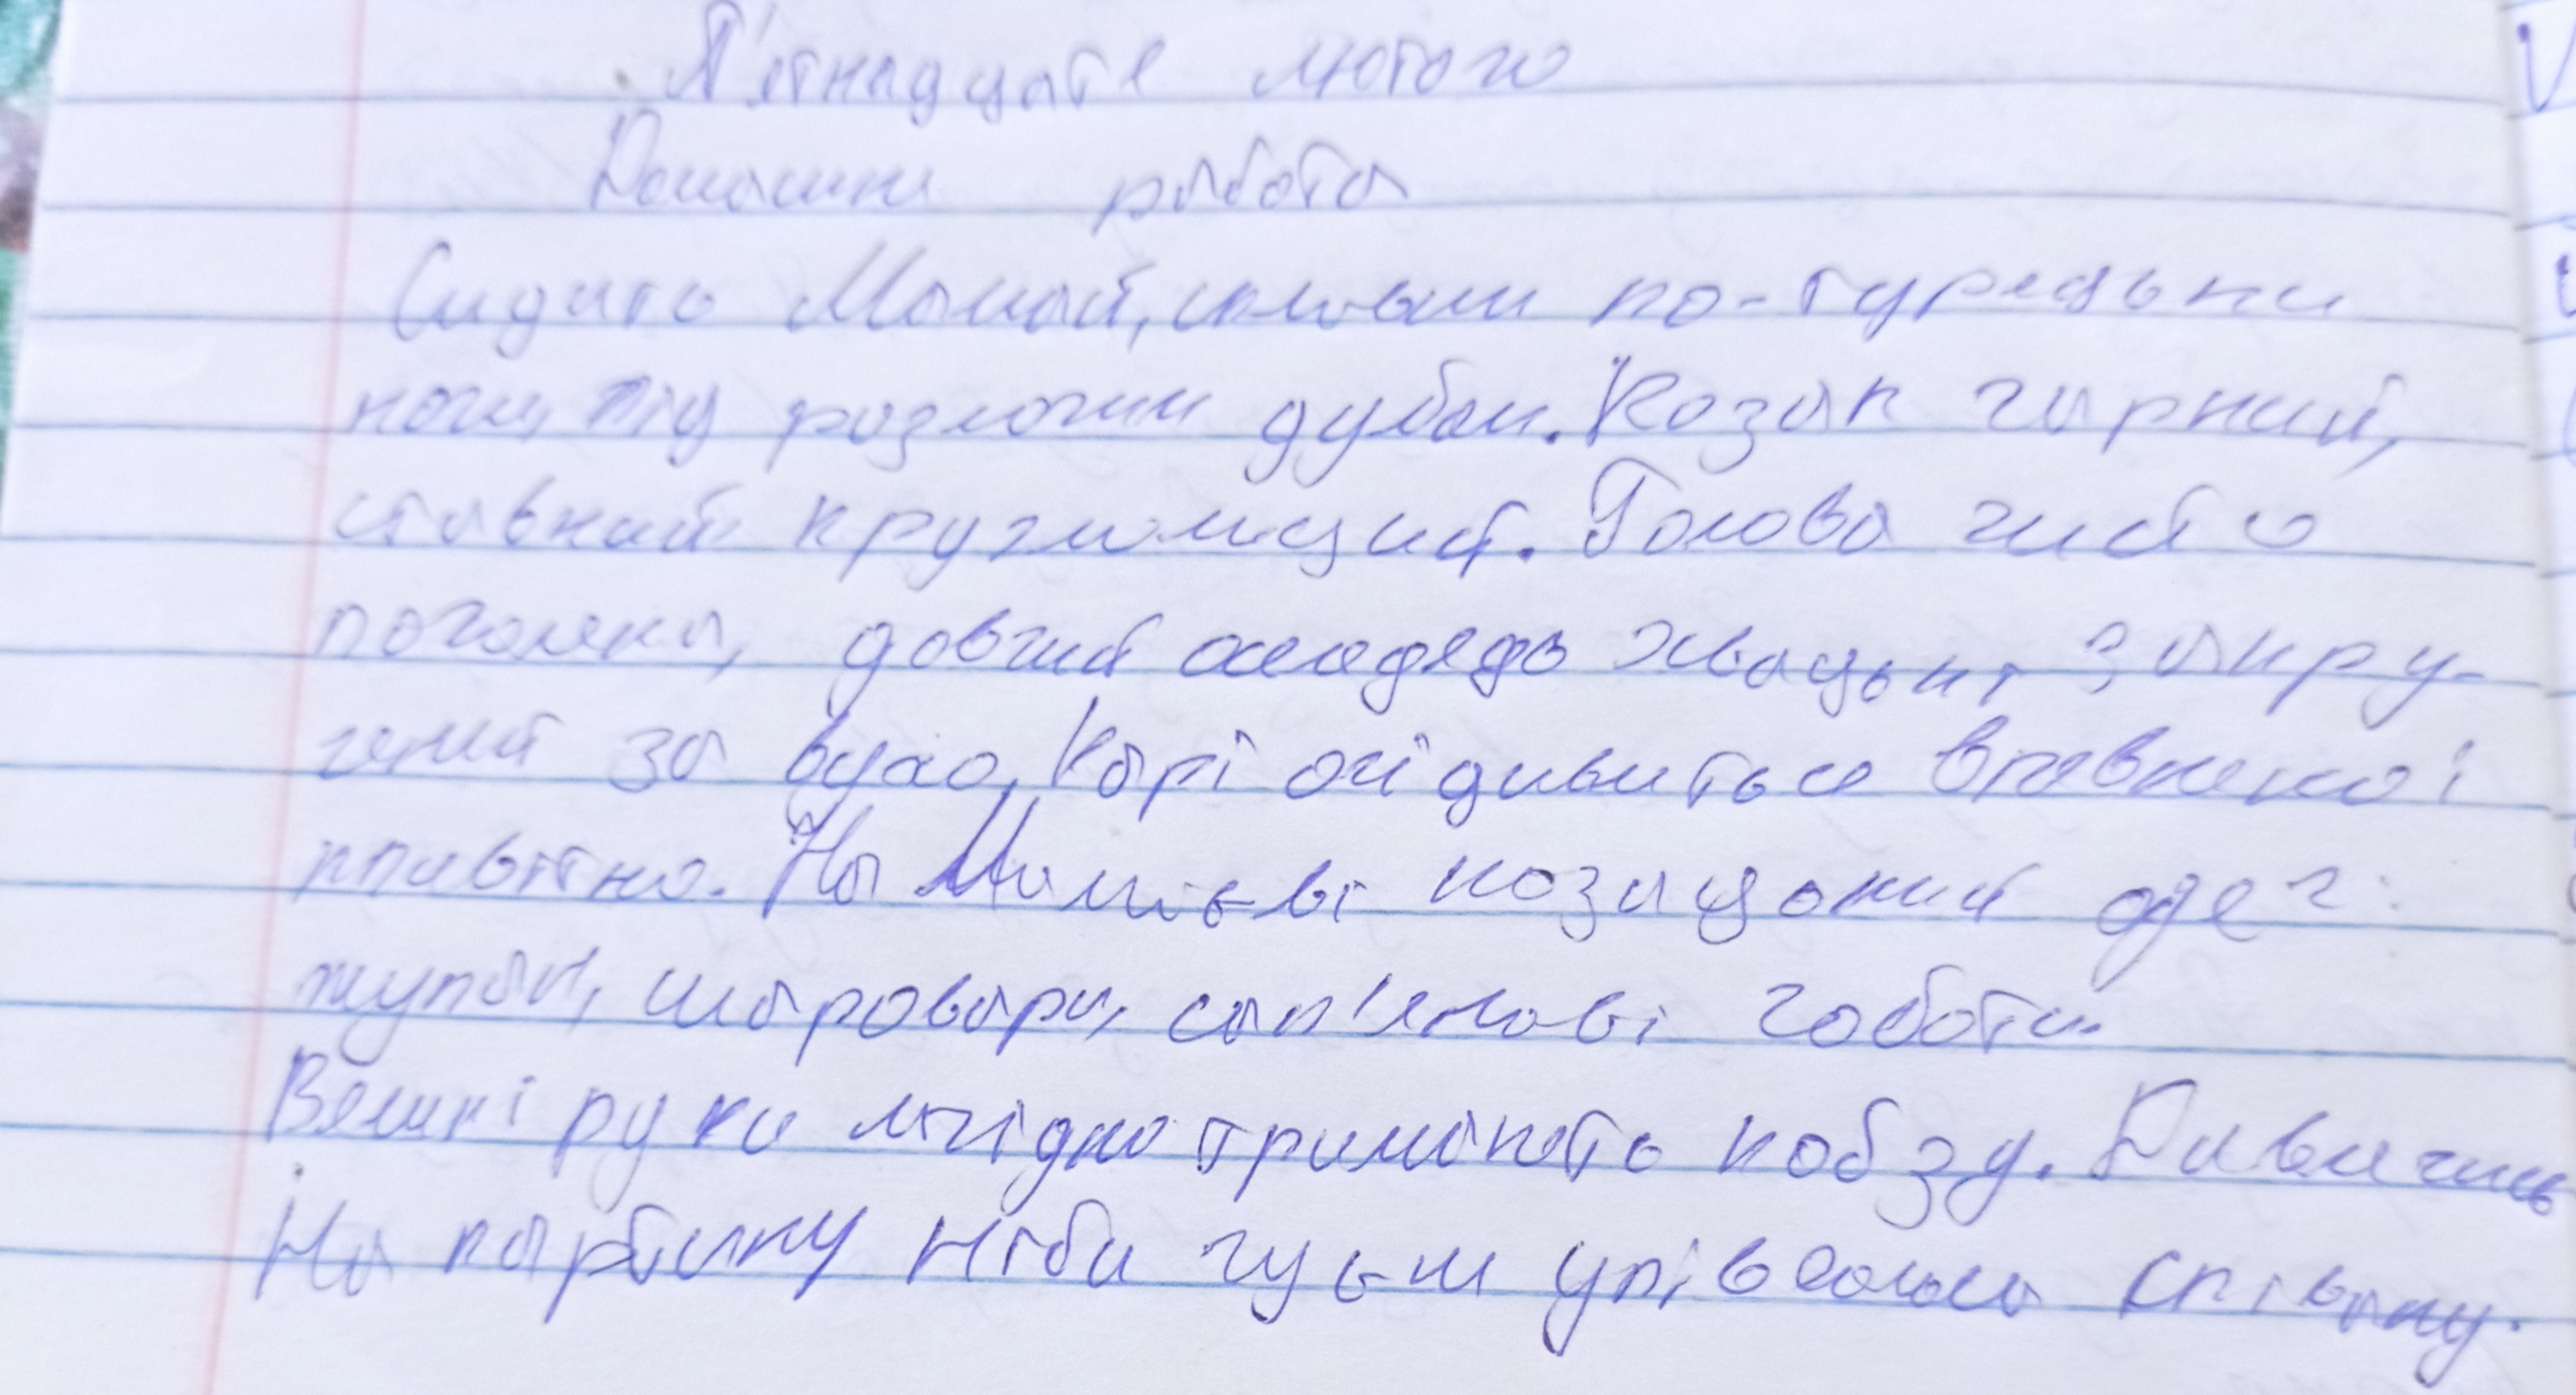 П'ятнадцяте лютого
Домашня робота
Сидить Мамай, склавши по-турецьки
ноги, під розлогим дубом. Козак гарний,
ставний круглолиций. Голова чисто
поголена, довгий оселедець хвацьки закру-
чений за вухо, Карі очі дивиться впевнено і
привітно. На Мамаєві козацький одяг:
жупан, шаровари, сап'янові чоботи.
Великі руки лагідно тримають кобзу. Дивлячись
На картину ніби чуєш упівголоса співанку.